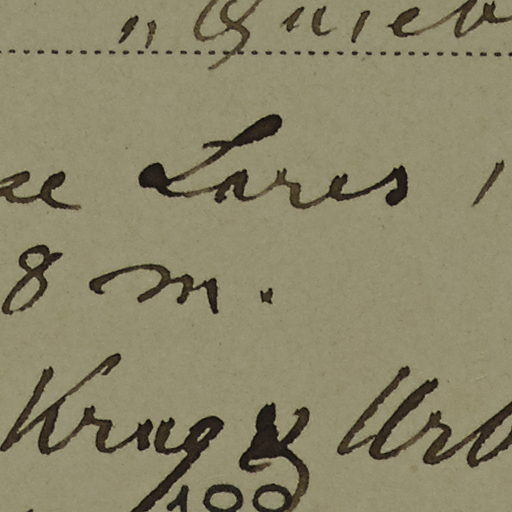 " Quieb
se Lares 1
8 m.
Krug & Urb
100